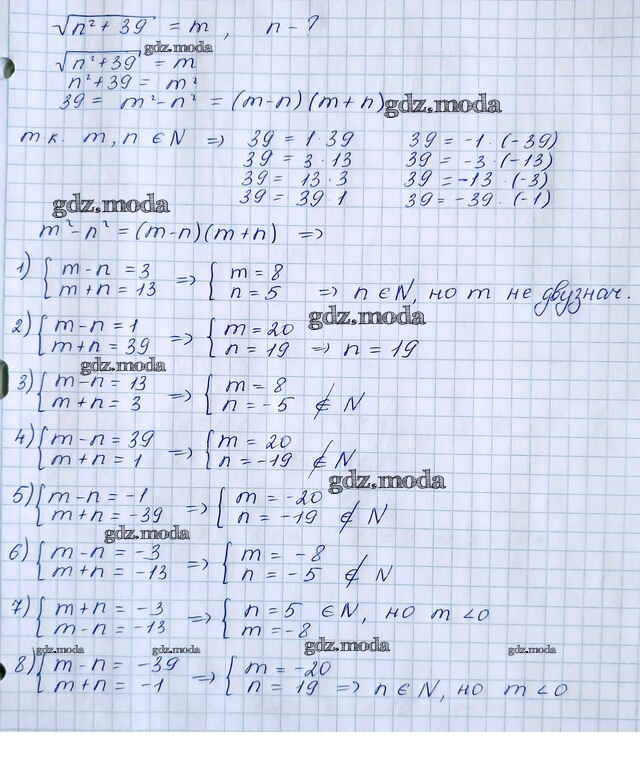 √n²+39 = m, n - ?
gdz.moda
√n²+39 = m
n²+39 = m²
39 = m²-n² = (m-n)(m+n) gdz.moda
т к. m, n ∈ N => 39 = 1·39 39 = -1·(-39)
39 = 3·13 39 = -3·(-13)
39 = 13·3 39 = -13·(-3)
39 = 39·1 39 = -39·(-1)
gdz.moda
m²-n² = (m-n)(m+n) =>
1) { m-n = 3 => { m = 8
m+n = 13 n = 5 => n ∈ N, но m не двузнач.
gdz.moda
2) { m-n = 1 => { m = 20
m+n = 39 n = 19 => n = 19
gdz.moda
3) { m-n = 13 => { m = 8
m+n = 3 n = -5 ∉ N
4) { m-n = 39 => { m = 20
m+n = 1 n = -19 ∉ N
gdz.moda
5) { m-n = -1 => { m = -20
m+n = -39 n = -19 ∉ N
gdz.moda
6) { m-n = -3 => { m = -8
m+n = -13 n = -5 ∉ N
7) { m+n = -3 => { n = 5 ∈ N, но m < 0
m-n = -13 m = -8
gdz.moda gdz.moda gdz.moda gdz.moda
8) { m-n = -39 => { m = -20
m+n = -1 n = 19 => n ∈ N, но m < 0